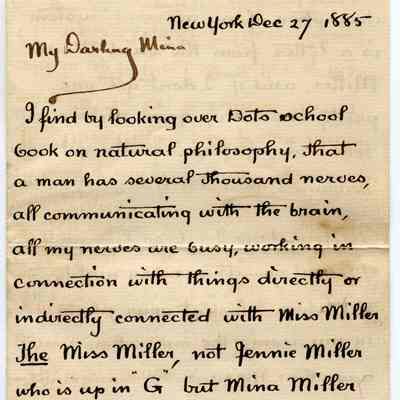 New York Dec 27 1885
My Darling Mina
I find by looking over Dots school
book on natural philosophy, that
a man has several thousand nerves,
all communicating with the brain,
all my nerves are busy, working in
connection with things directly or
indirectly connected with Miss Miller
The Miss Miller, not Jennie Miller
who is up in "G" but Mina Miller